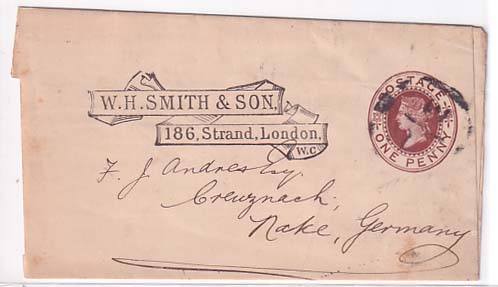 W.H. SMITH & SON,
186, Strand, London,
W.C.
POSTAGE
ONE PENNY
F. J. Andres Esq.
Creuznach,
Nake, Germany